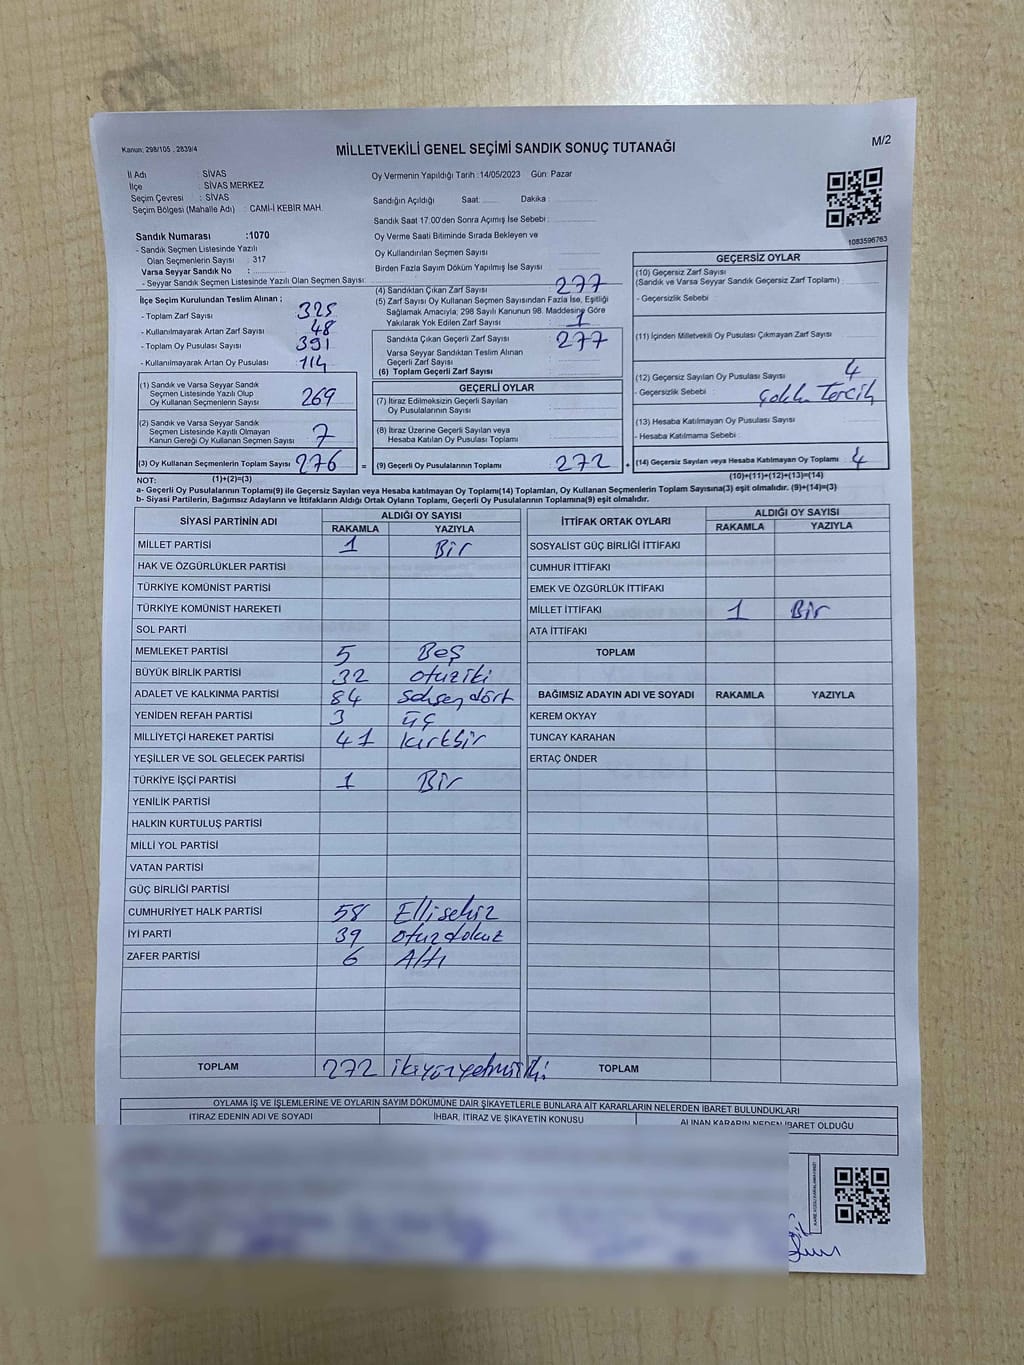 Kanun: 298/105 , 2839/4
MİLLETVEKİLİ GENEL SEÇİMİ SANDIK SONUÇ TUTANAĞI
M/2
İl Adı : SİVAS
İlçe : SİVAS MERKEZ
Seçim Çevresi : SİVAS
Seçim Bölgesi (Mahalle Adı) : CAMİ-İ KEBİR MAH.
Sandık Numarası :1070
- Sandık Seçmen Listesinde Yazılı
Olan Seçmenlerin Sayısı : 317
Varsa Seyyar Sandık No :
- Seyyar Sandık Seçmen Listesinde Yazılı Olan Seçmen Sayısı:
Oy Vermenin Yapıldığı Tarih :14/05/2023 Gün: Pazar
Sandığın Açıldığı Saat: Dakika :
Sandık Saat 17:00'den Sonra Açımış İse Sebebi :
Oy Verme Saati Bitiminde Sırada Bekleyen ve
Oy Kullandırılan Seçmen Sayısı
Birden Fazla Sayım Döküm Yapılmış İse Sayısı
1083596763
İlçe Seçim Kurulundan Teslim Alınan ;
- Toplam Zarf Sayısı : 325
- Kullanılmayarak Artan Zarf Sayısı : 48
- Toplam Oy Pusulası : 391
- Kullanılmayarak Artan Oy Pusulası : 114
(1) Sandık ve Varsa Seyyar Sandık
Seçmen Listesinde Yazılı Olup
Oy Kullanan Seçmenlerin Sayısı : 269
(2) Sandık ve Varsa Seyyar Sandık
Seçmen Listesinde Kayıtlı Olmayan
Kanun Gereği Oy Kullanan Seçmen Sayısı : 7
(3) Oy Kullanan Seçmenlerin Toplam Sayısı : 276
(4) Sandıktan Çıkan Zarf Sayısı : 277
(5) Zarf Sayısı Oy Kullanan Seçmen Sayısından Fazla İse, Eşitliği
Sağlamak Amacıyla; 298 Sayılı Kanunun 98. Maddesine Göre
Yakılarak Yok Edilen Zarf Sayısı : 1
Sandıkta Çıkan Geçerli Zarf Sayısı : 277
Varsa Seyyar Sandıktan Teslim Alınan
Geçerli Zarf Sayısı
(6) Toplam Geçerli Zarf Sayısı
GEÇERLİ OYLAR
(7) İtiraz Edilmeksizin Geçerli Sayılan
Oy Pusulalarının Sayısı
(8) İtiraz Üzerine Geçerli Sayılan veya
Hesaba Katılan Oy Pusulası Toplamı
= (9) Geçerli Oy Pusulalarının Toplamı : 272
GEÇERSİZ OYLAR
(10) Geçersiz Zarf Sayısı
(Sandık ve Varsa Seyyar Sandık Geçersiz Zarf Toplamı) :
- Geçersizlik Sebebi :
(11) İçinden Milletvekili Oy Pusulası Çıkmayan Zarf Sayısı
(12) Geçersiz Sayılan Oy Pusulası Sayısı : 4
- Geçersizlik Sebebi : Çoklu Tercih
(13) Hesaba Katılmayan Oy Pusulası Sayısı
- Hesaba Katılmama Sebebi :
+ (14) Geçersiz Sayılan veya Hesaba Katılmayan Oy Toplamı : 4
NOT: (1)+(2)=(3)
(10)+(11)+(12)+(13)=(14)
a- Geçerli Oy Pusulalarının Toplamı(9) ile Geçersiz Sayılan veya Hesaba katılmayan Oy Toplamı(14) Toplamları, Oy Kullanan Seçmenlerin Toplam Sayısına(3) eşit olmalıdır. (9)+(14)=(3)
b- Siyasi Partilerin, Bağımsız Adayların ve İttifakların Aldığı Ortak Oyların Toplamı, Geçerli Oy Pusulalarının Toplamına(9) eşit olmalıdır.
SİYASİ PARTİNİN ADI ALDIĞI OY SAYISI
RAKAMLA YAZIYLA
MİLLET PARTİSİ 1 Bir
HAK VE ÖZGÜRLÜKLER PARTİSİ
TÜRKİYE KOMÜNİST PARTİSİ
TÜRKİYE KOMÜNİST HAREKETİ
SOL PARTİ
MEMLEKET PARTİSİ 5 Beş
BÜYÜK BİRLİK PARTİSİ 32 otuziki
ADALET VE KALKINMA PARTİSİ 84 seksendört
YENİDEN REFAH PARTİSİ 3 üç
MİLLİYETÇİ HAREKET PARTİSİ 41 kırkbir
YEŞİLLER VE SOL GELECEK PARTİSİ
TÜRKİYE İŞÇİ PARTİSİ 1 Bir
YENİLİK PARTİSİ
HALKIN KURTULUŞ PARTİSİ
MİLLİ YOL PARTİSİ
VATAN PARTİSİ
GÜÇ BİRLİĞİ PARTİSİ
CUMHURİYET HALK PARTİSİ 58 Ellisekiz
İYİ PARTİ 39 otuzdokuz
ZAFER PARTİSİ 6 Altı
TOPLAM 272 ikiyüzyetmişiki
İTTİFAK ORTAK OYLARI ALDIĞI OY SAYISI
RAKAMLA YAZIYLA
SOSYALİST GÜÇ BİRLİĞİ İTTİFAKI
CUMHUR İTTİFAKI
EMEK VE ÖZGÜRLÜK İTTİFAKI
MİLLET İTTİFAKI 1 Bir
ATA İTTİFAKI
TOPLAM
BAĞIMSIZ ADAYIN ADI VE SOYADI RAKAMLA YAZIYLA
KEREM OKYAY
TUNCAY KARAHAN
ERTAÇ ÖNDER
TOPLAM
OYLAMA İŞ VE İŞLEMLERİNE VE OYLARIN SAYIM DÖKÜMÜNE DAİR ŞİKAYETLERLE BUNLARA AİT KARARLARIN NELERDEN İBARET BULUNDUKLARI
İTİRAZ EDENİN ADI VE SOYADI İHBAR, İTİRAZ VE ŞİKAYETİN KONUSU ALINAN KARARIN NEDEN İBARET OLDUĞU